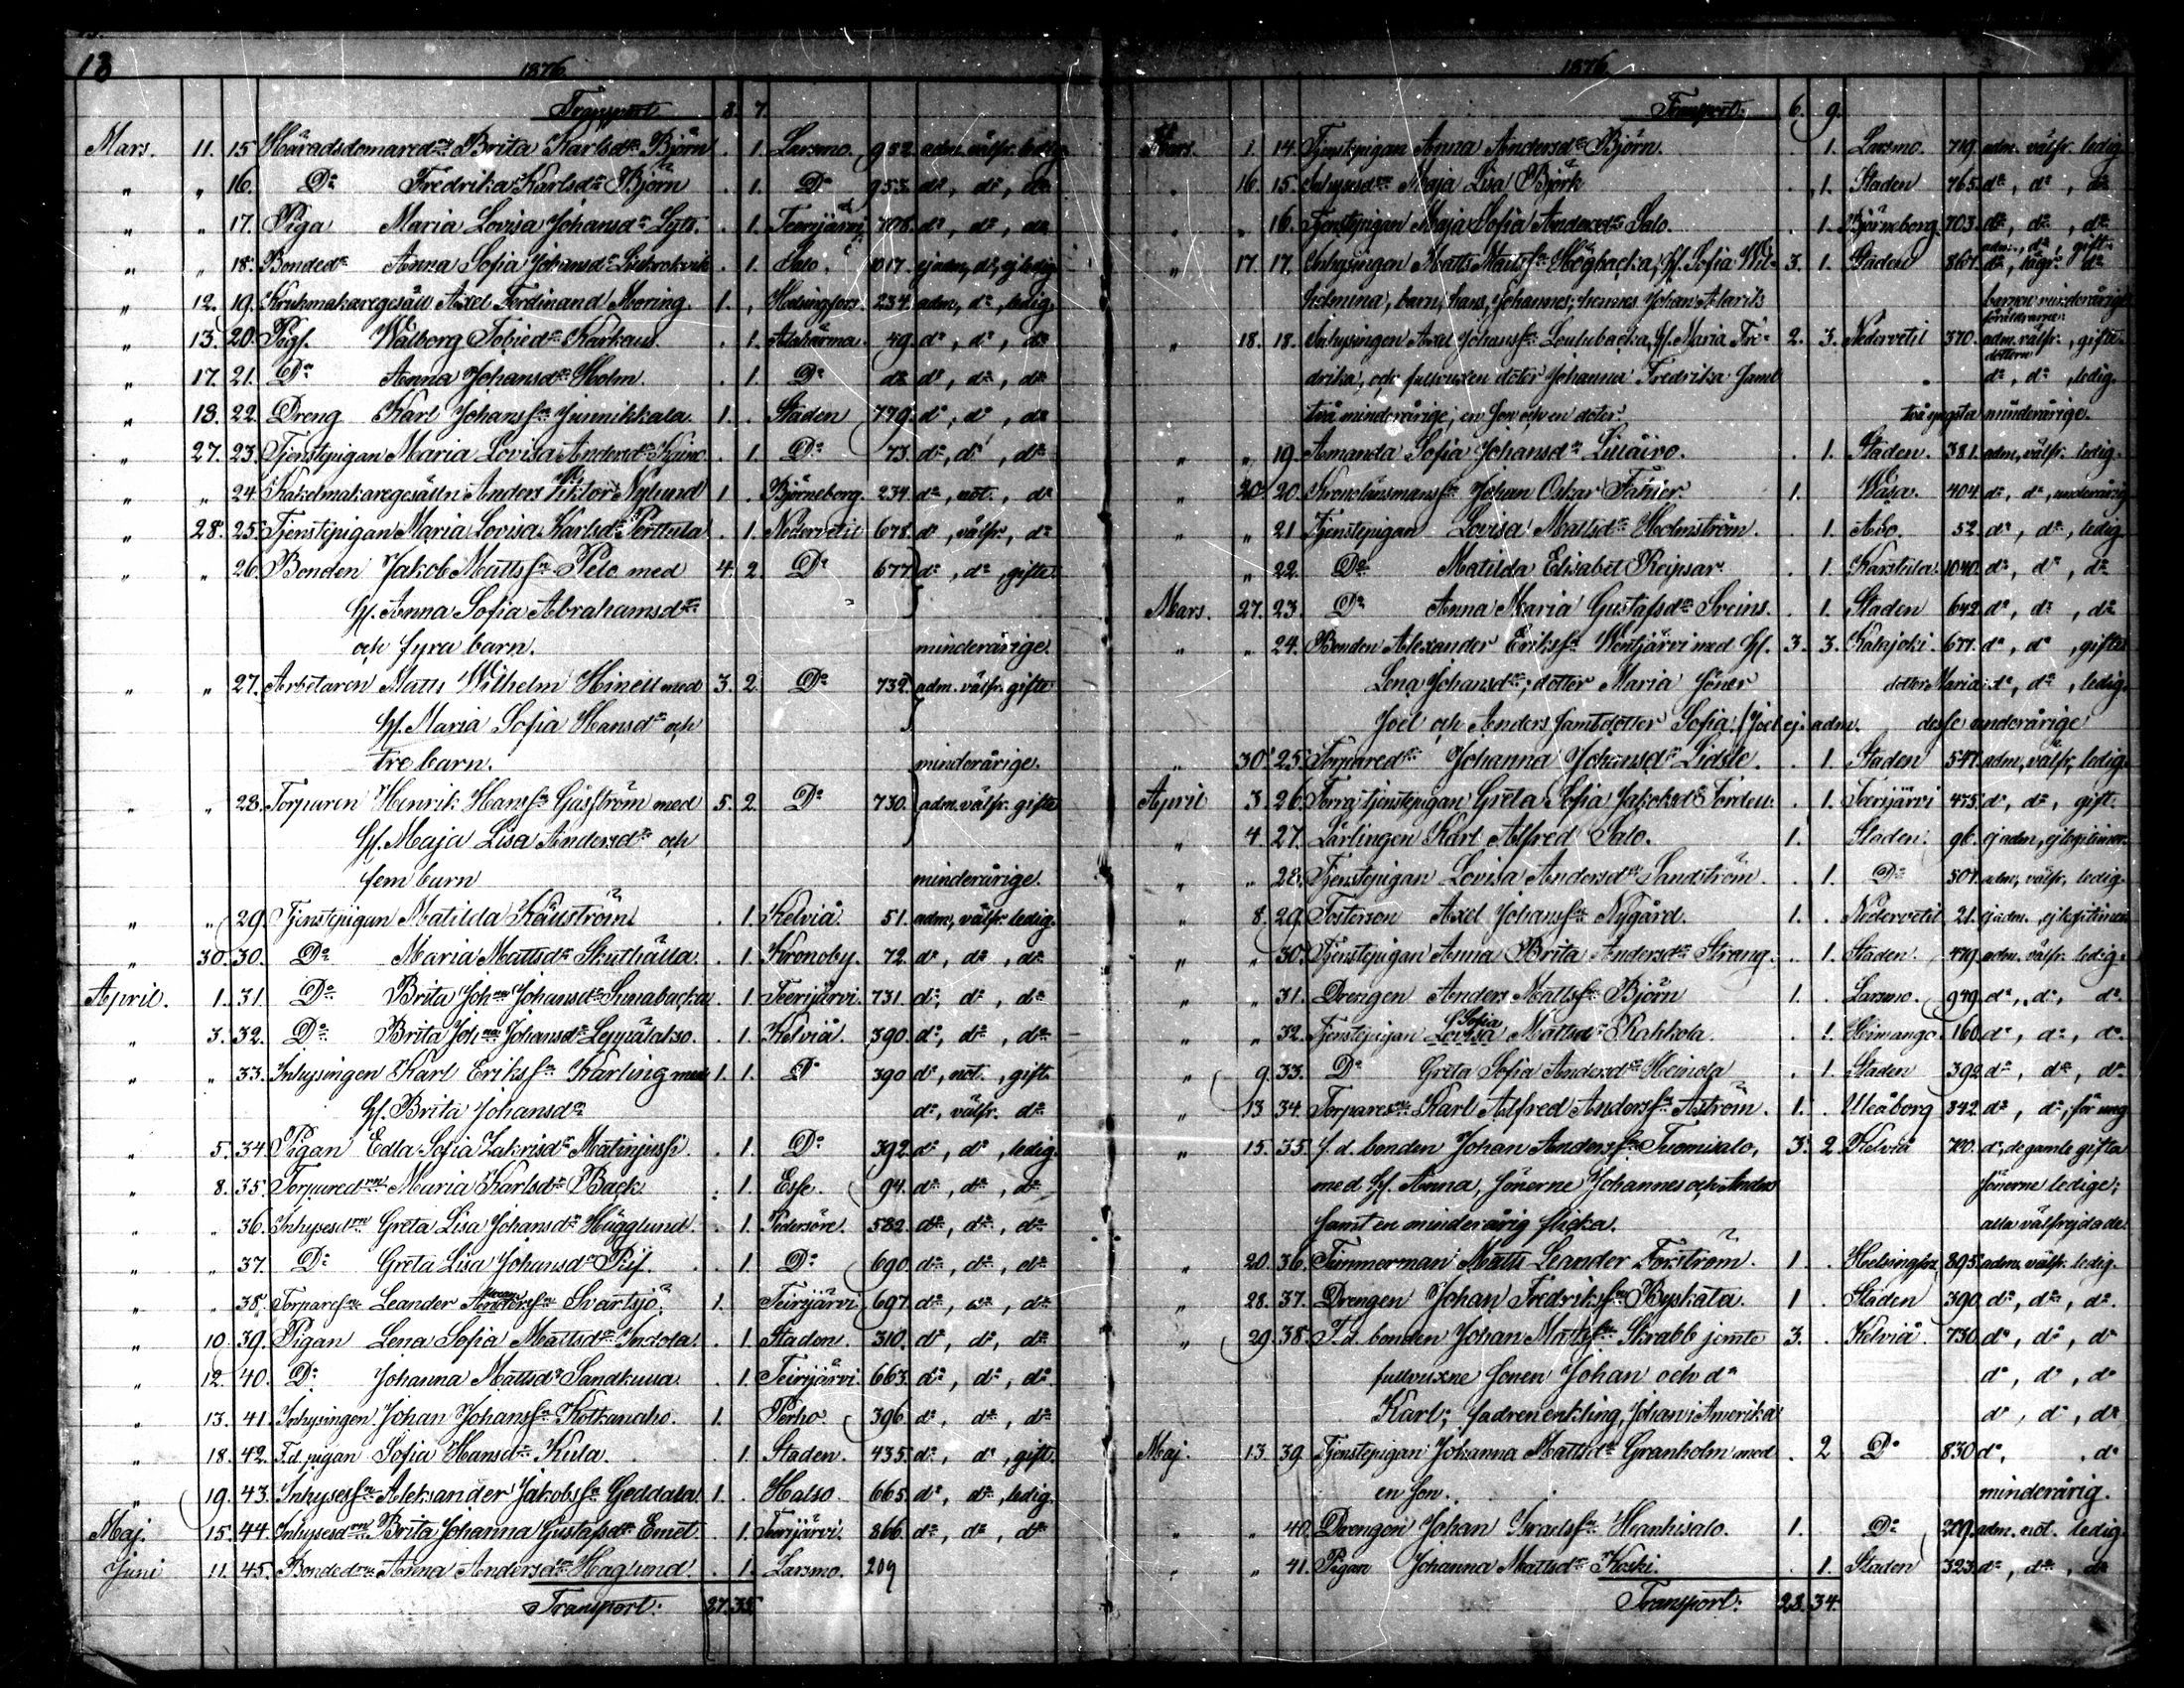 18
1876
Transport 8. 7.
Mars. 11. 15 Häradsdomaredr. Brita Karlsdr Björn . 1. Larsmo. 952. adm. välfr. ledig
" " 16. Do Fredrika Karlsdr Björn . 1. Do 953. do, do, do
" " 17. Piga Maria Lovisa Johansdr Lyts. . 1. Teerijärvi 708. do, do, do
" " 18. Bondedr Anna Sofia Johansdr . 1. Salo. 1017. ej adm, do, ej ledig
" 12. 19. Krukmakaregesäll Axel Ferdinand Moring. 1. , Helsingfors. 234. adm, do, ledig.
" 13. 20. Pig. Walborg Tobiedr Karkaus. . 1. Alahärmä. 49. do, do, do
" 17. 21. Do Anna Johansdr Holm. . 1. Do do do, do, do
" 18. 22. Dreng Karl Johansson Junnikkala. 1. . Staden 779. do, do, do
" 27. 23. Tjenstepigan Maria Lovisa Andersdr Kaino . 1. Do 73. do, do, do
" " 24. Kakelmakaregesälln Anders Viktor Nylund 1 . Björneborg. 234. do, not., do
" 28. 25. Tjenstepigan Maria Lovisa Karlsdr Perttula . 1. Nedervetil 678. do, välfr., do
" " 26. Bonden Jakob Mattsson Pelo med 4. 2. Do 677. do, do, gifte
hf. Anna Sofia Abrahamsdr
och fyra barn. minderårige.
" " 27. Arbetaren Matts Wilhelm Hinell med 3. 2. Do 732. adm. välfr. gifte
hf. Maria Sofia Hansdr och
tre barn. minderårige.
" " 28. Torparen Henrik Hansson Gäsström med 5. 2. Do 730. adm. välfr. gifte
hf. Maja Lisa Andersdr och
fem barn minderårige.
" " 29. Tjenstepigan Matilda Kåuström . 1. Kelviå. 51. adm, välfr. ledig.
" 30. 30. Do Maria Mattsdr Skuthälla. . 1. Kronoby. 72. do, do, do
April. 1. 31. Do Brita Johna Johansdr Sunabacka . 1. Teerijärvi. 731. do, do, do
" 3. 32. Do Brita Johna Johansdr Leppälakso. . 1. Kelviå. 390. do, do, do
" " 33. Inhysingen Karl Eriksson Karling med 1. 1. Do 390 do, not., gift.
hf. Brita Johansdr do, välfr. do
" 5. 34. Pigan Edla Sofia Zakrisdr . 1. Do 392. do, do, ledig.
" 8. 35. Torparedrn Maria Karlsdr Back . 1. Esse. 94. do, do, do
" " 36. Inhysesdrn Greta Lisa Johansdr Hägglund. . 1. Pedersöre. 582. do, do, do
" " 37. Do Greta Lisa Johansdr . 1. Do 690. do, do, do
" " 38. Torpareson Leander Andersson Svartsjö. 1. Teirijärvi 697. do, do, do
" 10. 39. Pigan Lena Sofia Mattsdr Indola. . 1. Staden. 310. do, do, do
" 12. 40. Do Johanna Mattsdr Sandkulla. . 1. Teirijärvi. 663. do, do, do
" 13. 41. Inhysingen Johan Johansson Kotkanaho. 1. Perho 396. do, do, do
" 18. 42. F.d. pigan Sofia Hansdr Kula. . 1. Staden. 435. do, do, gift.
" 19. 43. Inhysesson Aleksander Jakobsson Geddala 1. . Halso. 665. do, do, ledig.
Maj. 15. 44. Inhysesdrn Brita Johanna Gustafsdr Emet . 1. Teerijärvi. 866. do, do, do
Juni 11. 45. Bondedrn Anna Andersdr Haglund. . 1. Larsmo. 209
Transport: 27. 35
1876
Transport: 6. 9.
Mars. 1. 14. Tjenstpigan Anna Andersdr Björn. . 1. Larsmo. 719. adm. välfr. ledig
" 16. 15. Inhysesdrn Maja Lisa Björk . 1. Staden 765. do, do, do
" " 16. Tjenstepigan Maja Sofia Andersdr Salo. . 1. Björneborg. 703. do, do, do
" 17. 17. Inhysingen Matts Mattsson Högbacka, hf. Sofia Wil- 3. 1. Staden 867. adm., do, gift. do, do
helmina, barn, hans, Johannes; hennes Johan Alarik barnen minderårige
" 18. 18. Inhysingen Axel Johansson Loulubacka, hf. Maria Fre- 2. 3. Nedervetil 370. föräldrarne: adm. välfr., gifte
drika, och fullvuxen doter Johanna Fredrika samt dottern do, do, ledig.
två minderårige; en son och en doter. två yngsta minderårige.
" " 19. Amanda Sofia Johansdr . 1. Staden. 381. adm, välfr. ledig.
" 20. 20. Kronolänsmansson Johan Oskar 1. Wasa. 404. do, do, underårig
" " 21. Tjenstepigan Lovisa Mattsdr Holmström. . 1. Åbo. 52. do, do, ledig.
" 22. Do Matilda Elisabet Reipsar . 1. Karstula. 1040. do, do, do
Mars. 27. 23. Do Anna Maria Gustafsdr Sveins. . 1. Staden 642. do, do, do
" " 24. Bonden Alexander Eriksson Wentjärvi med hf. 3. 3. Kalajoki. 677. do, do, gifte
Lena Johansdr; dotter Maria söner dotter Maria: do, do, ledig.
Joel och Anders samt dotter Sofia. (Joel ej adm. desse underårige
" 30. 25. Torparedrn Johanna Johansdr Lidsle. . 1. Staden 547. adm, välfr., ledig.
April 3. 26. Förra tjenstepigan Greta Sofia Jakobsdr Forden. . 1. Teerijärvi 475. do, do, gift.
" 4. 27. Lärlingen Karl Alfred Salo. 1. Staden. 96. ej adm, ej legitimer.
" " 28. Tjenstepigan Lovisa Andersdr Sandström. . 1. Do 507. adm, välfr. ledig.
" 8. 29. Fosterson Axel Johansson Nygård. 1. . Nedervetil 21. ej adm., ej legitimer
" " 30. Tjenstepigan Anna Brita Andersdr Strang. . 1. Staden. 479. adm. välfr. ledig.
" " 31. Drengen Anders Mattsson Björn 1. . Larsmo. 949. do, do, do
" " 32. Tjenstepigan Lovisa Sofia Mattsdr Kahkola. . 1. Himango. 160. do, do, do.
" 9. 33. Do Greta Sofia Andersdr Heinola . 1. Staden 392. do, do, do
" 13. 34. Torpareson Karl Alfred Andersson Åström. 1. . Uleåborg 842. do, do; för ung
" 15. 35. f.d. bonden Johan Andersson Tuomisalo, 3. 2. Kelviå 700. do, de gamle gifta
med hf. Anna, sönerne Johannes och Anders sönerne ledige;
samt en minderårig flicka. alla välfrejdade.
" 20. 36. Timmerman Matts Leander Forström. 1. . Helsingfors 895. adm. välfr. ledig.
" 28. 37. Drengen Johan Fredriksson Byskata. 1 . Staden 390. do, do, do.
" 29. 38. F.d. bonden Johan Mattsson Skrabb jemte 3. . Kelviå 730. do, do, do
fullvuxne sonen Johan och do do, do, do
Karl; fadren enkling, Johan i Amerika do, do, do
Maj. 13. 39. Tjenstepigan Johanna Mattsdr Granholm med . 2 Do 830 do, , do
en son. minderårig.
" " 40. Drengen Johan Israelsson Hanhisalo. 1. Do 209. adm. not. ledig.
" " 41. Pigan Johanna Mattsdr Koski. . 1. Staden 323. do, do, do
Transport: 28. 34.